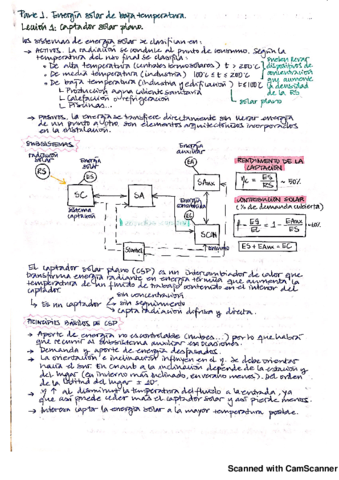 Parte 1. Energía solar de baja temperatura.
Lección 1: Captador solar plano.
Los sistemas de energía solar se clasifican en:
→ ACTIVOS. La radiación se conduce al punto de consumo. Según la
temperatura del uso final se clasifica:
• De alta temperatura (centrales termosolares) t > 250°C
• De media temperatura (industria) 100°C ≤ t ≤ 250°C
• De baja temperatura (industria y edificación) t ≤ 100°C
↳ Producción agua caliente sanitaria
↳ Calefacción o refrigeración
↳ Piscinas...
pueden llevar
dispositivos de
concentración
que aumente
la densidad
de la RS
solar plano
→ PASIVOS. La energía se transfiere directamente sin llevar energía
de un punto a otro. Son elementos arquitectónicos incorporados
en la instalación.
SUBSISTEMAS
Radiación
solar
RS
Energía
solar
ES
SC
Sistema
captación
SA
Energía
auxiliar
EA
SAux
EC
SC/M
RENDIMIENTO DE LA
CAPTACIÓN
ηc = ES/RS ~ 50%
CONTRIBUCIÓN SOLAR
(% de demanda cubierta)
f = ES/EC = 1 - EAux/EC
ES + EAux = EC
El captador solar plano (CSP) es un intercambiador de calor que
transforma energía radiante en energía térmica que aumenta la
temperatura de un fluido de trabajo contenido en el interior del
captador.
↳ Es un captador
sin concentración
sin seguimiento
capta radiación difusa y directa.
PRINCIPIOS BÁSICOS DE CSP
→ Aporte de energía no es controlable (nubes...) por lo que habrá
que recurrir al subsistema auxiliar en ocasiones.
→ Demanda y aporte de energía desfasados.
→ La orientación e inclinación influyen en η. Se debe orientar
hacia el sur. En cuanto a la inclinación depende de la estación y
del lugar (en invierno más inclinado, en verano menos). Del orden
de la latitud del lugar ± 10°.
→ η ↑ al disminuir la temperatura del fluido a la entrada, ya
que así puede ceder más el captador solar y así pierde menos.
→ Interesa captar la energía solar a la mayor temperatura posible.
Scanned with CamScanner